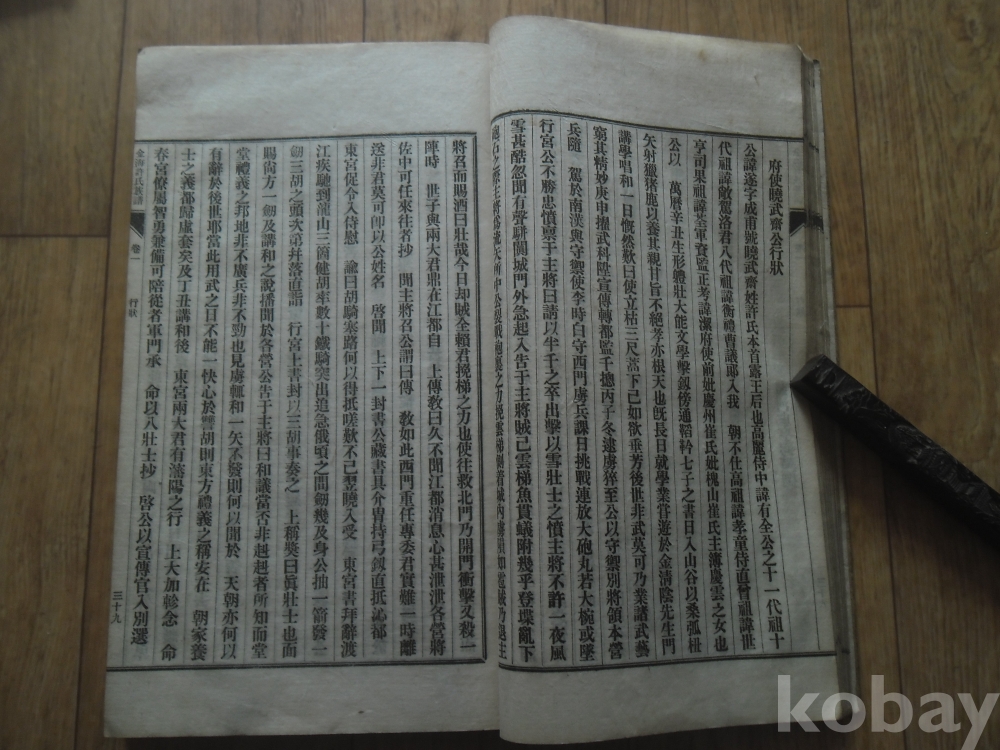 府使曉武齋公行狀
公諱遂字成甫號曉武齋姓許氏本首露王后也高麗侍中諱有全公之十一代祖十
代祖諱敵駕洛君八代祖諱衡禮曹議郞入我 朝不仕高祖諱孝童侍直曾祖諱世
亨司果祖諱 軍資監正考諱潔府使前妣慶州崔氏妣槐山崔氏主簿慶雲之女也
公以 萬曆辛丑生形體壯大能文學擊劒傍通韜鈐七子之書日入山谷以桑弧杻
矢射獵猪鹿以養其親甘旨不絕孝亦根天也旣長日就學業嘗遊於金淸陰先生門
講學唱和一日慨然歎曰使立枯三尺蒿下己如欲垂芳後世非武莫可乃業諸武藝
窮其精妙庚申擢武科陞宣傳轉都監千摠丙子冬遽虜猝至公以守禦別將領本營
兵隨 駕於南漢與守禦使李時白守西門虜兵諜日挑戰連放大砲丸若大椀或墜
行宮公不勝忠憤稟于主將曰請以牛千之卒出擊以雪壯士之憤主將不許一夜風
雪甚酷忽聞有聲騈闐城門外急起入告于主將賊己雲梯魚貫蟻附幾乎登堞亂下
砲石之際主將爲流矢所中公裂戰袍裹之 挽雲梯 賊乃退主
將召而賜酒曰壯哉今日却賊全賴君挽梯之力也使往救北門乃開門衝擊又殺一
陣時 世子與兩大君鼎在江都自 上傳敎曰久不聞江都消息心甚泄泄各營將
佐中可任來往者抄 聞主將召公謂曰傳 敎如此西門重任專委君實難一時離
送非君莫可卽以公姓名 啓聞 上下一封書公藏書具分胄持弓劒直抵 都
東宮促令入侍慰 諭曰胡騎塞路何以得抵嗟歎不己翌曉入受 東宮書拜辭渡
江疾馳到龍山三箇健胡率數十鐵騎突出追急俄頃之間劒幾及身公抽一箭 一
劒三胡之頭次第幷落直詣 行宮上書封以三胡事奏之 上稱奬曰眞壯士也而
賜尙方一劒及講和之說播聞於各營公告于主將曰和議當否非赳赳者所知而堂
堂禮義之邦地非不廣兵非不勁也見虜輒和一矢不發則何以聞於 天朝亦何以
有辭於後世耶當此用武之日不能一快心於讐胡則東方禮義之稱安在 朝家養
士之義都歸虛套矣及丁丑講和後 東宮兩大君有瀋陽之行 上大加軫念 命
春宮僚屬智勇兼備可陪從者軍門承 命以八壯士抄 啓公以宣傳官入別選
金海許氏族譜
卷一
行狀
三十九
kobay